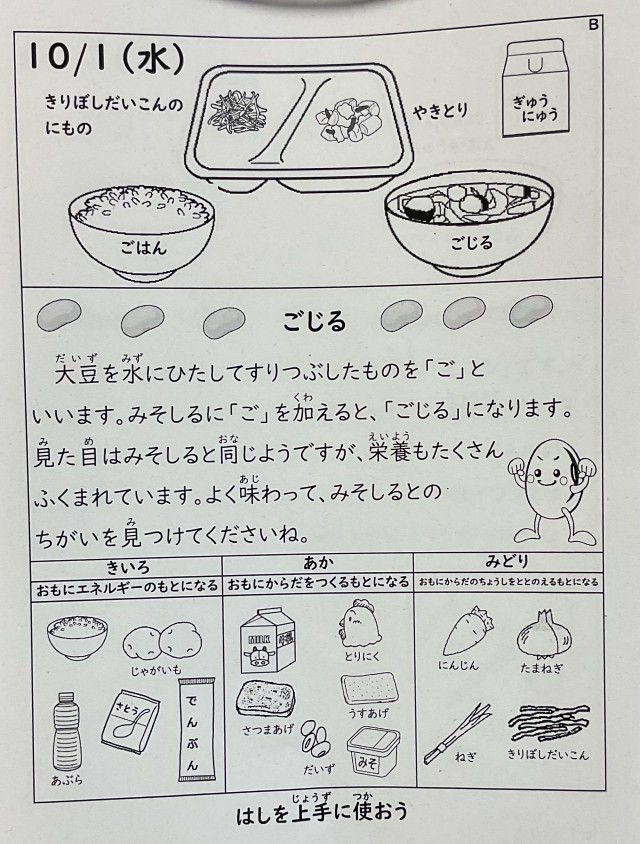 B
10/1(水)
きりぼしだいこんの
にもの
やきとり
ぎゅう
にゅう
ごはん
ごじる
ごじる
大豆を水にひたしてすりつぶしたものを「ご」と
いいます。みそしるに「ご」を加えると、「ごじる」になります。
見た目はみそしると同じようですが、栄養もたくさん
ふくまれています。よく味わって、みそしるとの
ちがいを見つけてくださいね。
きいろ
おもにエネルギーのもとになる
じゃがいも
さとう
でんぷん
あぶら
あか
おもにからだをつくるもとになる
MILK
とりにく
さつまあげ
うすあげ
だいず
みそ
みどり
おもにからだのちょうしをととのえるもとになる
にんじん
たまねぎ
ねぎ
きりぼしだいこん
はしを上手に使おう